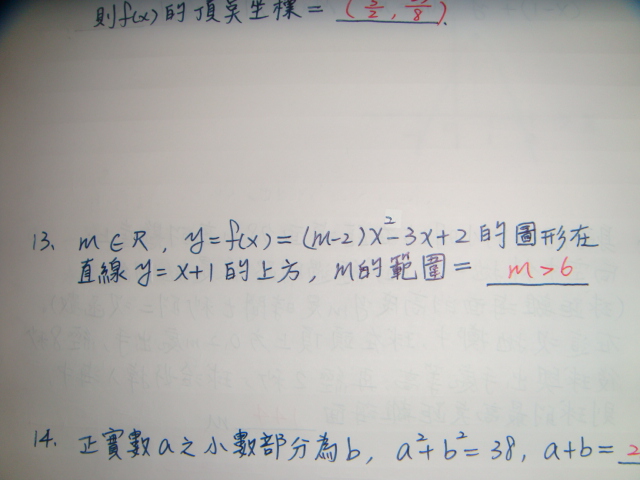 則f(x)的頂點坐標=(3/2, /8).
13. m∈R, y=f(x)=(m-2)x²-3x+2的圖形在
直線y=x+1的上方,m的範圍= m>6
14. 正實數a之小數部分為b, a²+b²=38, a+b=2